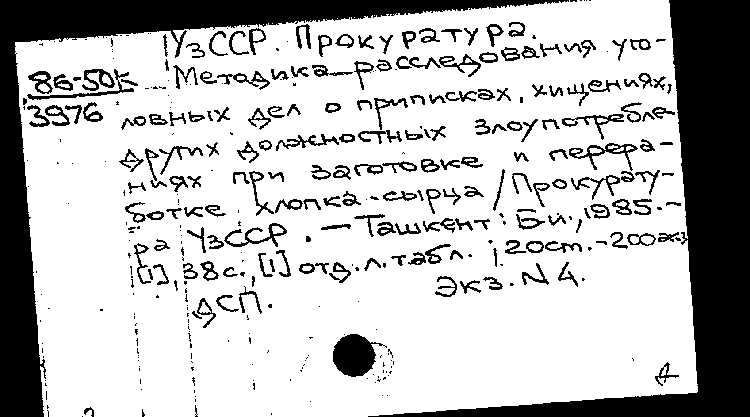 УзССР. Прокуратура.
86-50К Методика расследования уго-
3976 ловных дел о приписках, хищениях,
других должностных злоупотребле-
ниях при заготовке и перера-
ботке хлопка-сырца / Прокурату-
ра УзССР. — Ташкент: Б.и., 1985. -
[1], 38 с., [1] отд. л. табл.; 20 ст. - 200 экз
ДСП. Экз. N 4.